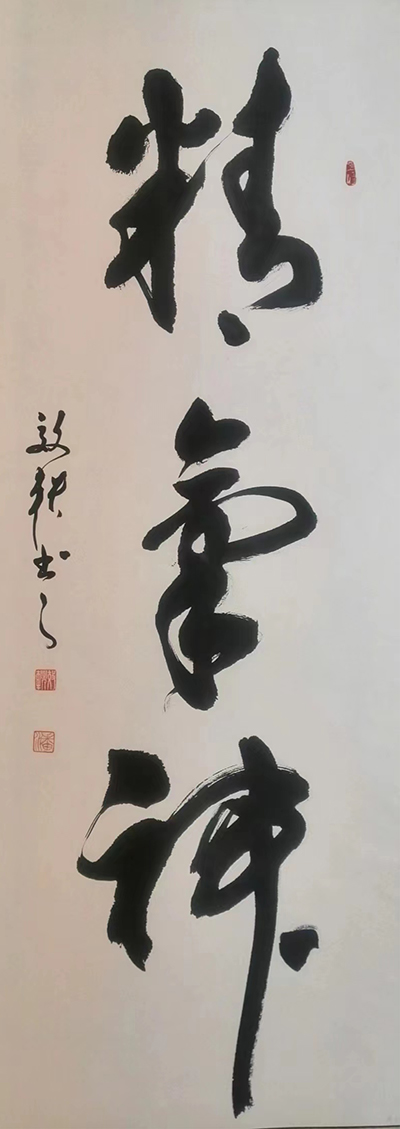 精氣神
书之